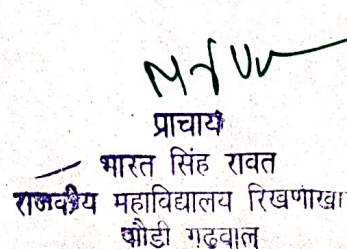 प्राचार्य
भारत सिंह रावत
राजकीय महाविद्यालय रिखणीखा
पौडी गढवाल